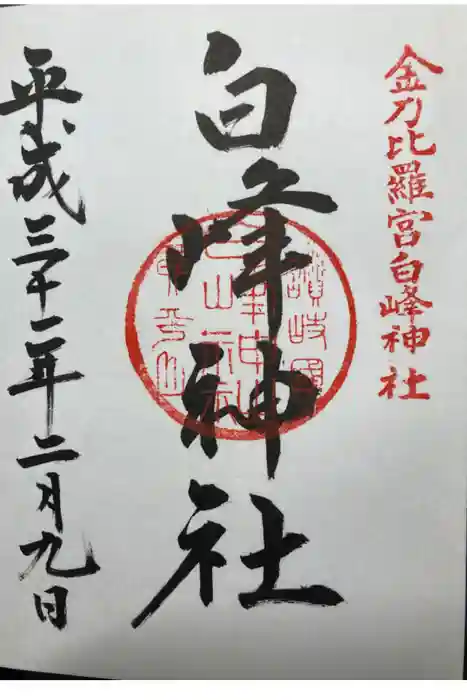 金刀比羅宮白峰神社
白峰神社
讃岐國
白峰神社
琴平山
平成三十一年二月九日